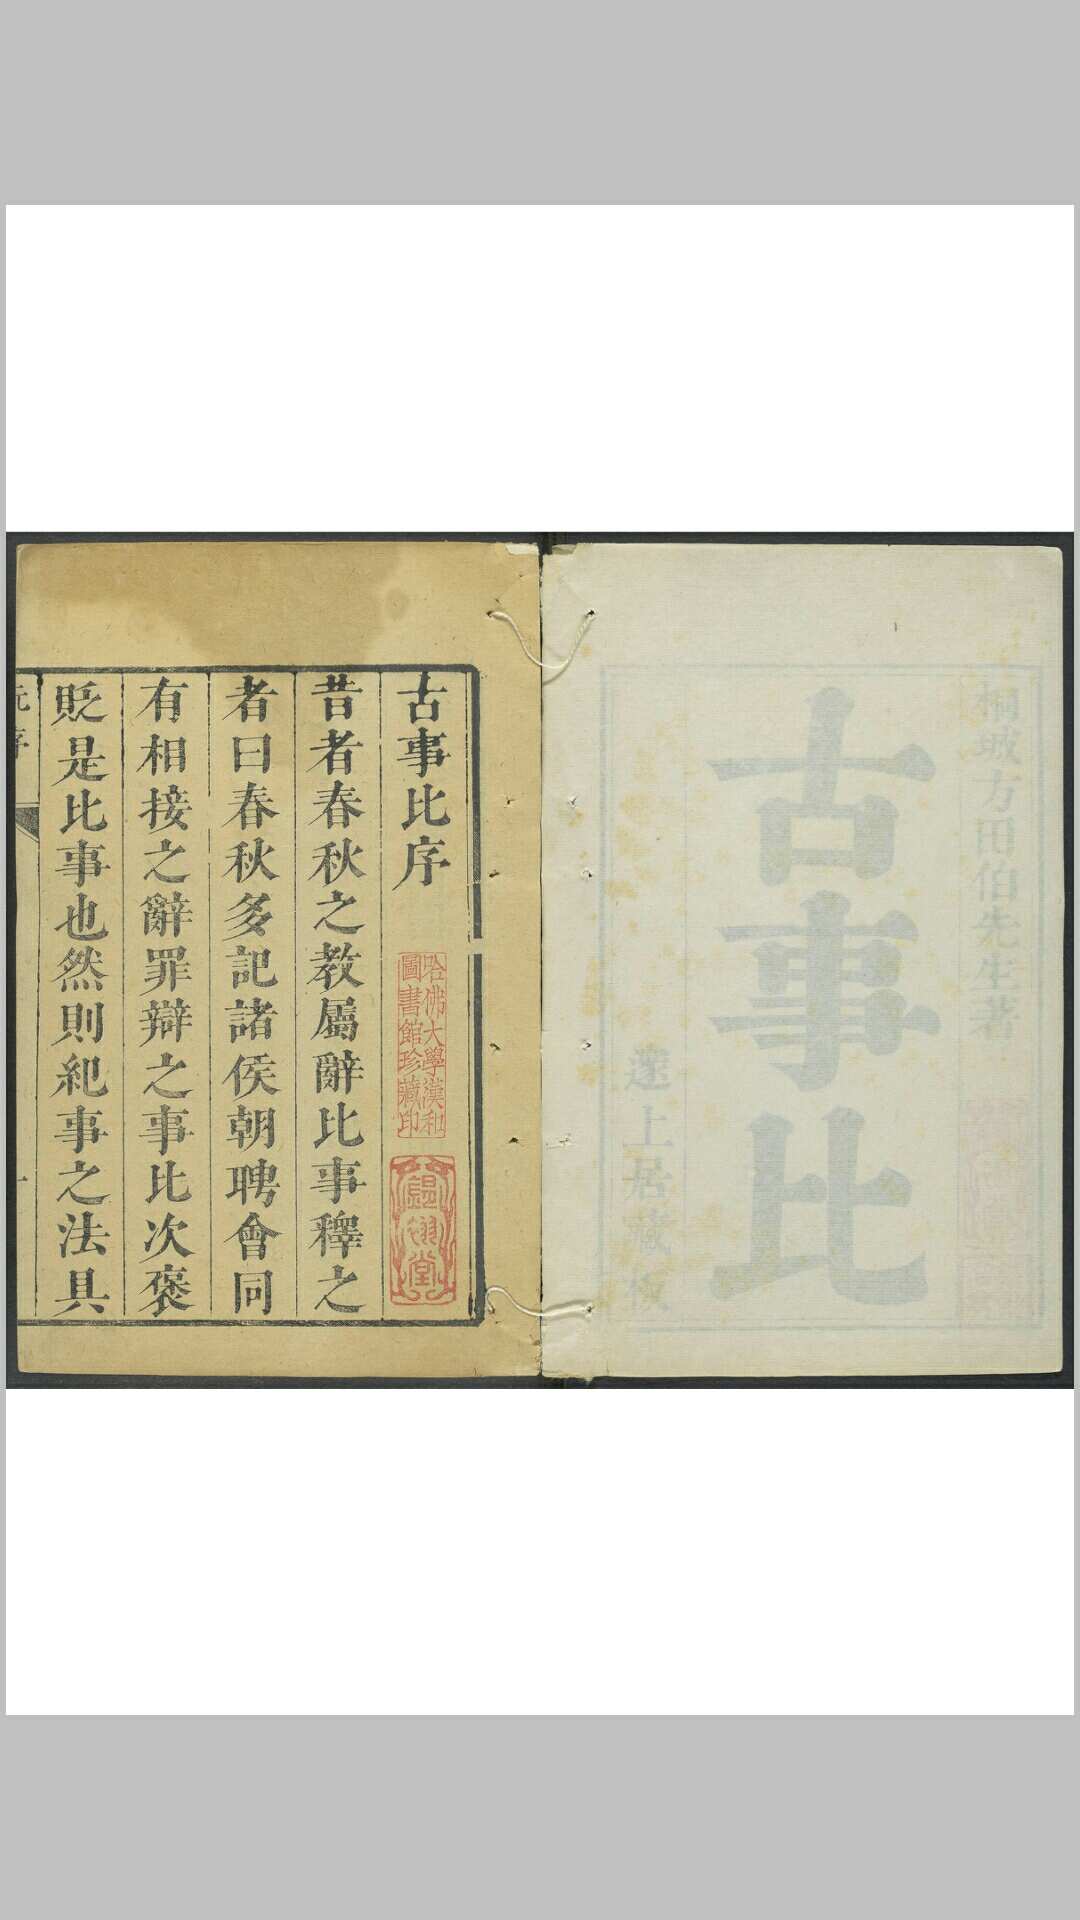 桐城方田伯先生著
古事比
遠上居藏板
古事比序
哈佛大學漢和
圖書館珍藏印
昔者春秋之教屬辭比事釋之
者曰春秋多記諸侯朝聘會同
有相接之辭罪辯之事比次褒
貶是比事也然則紀事之法具
序
一